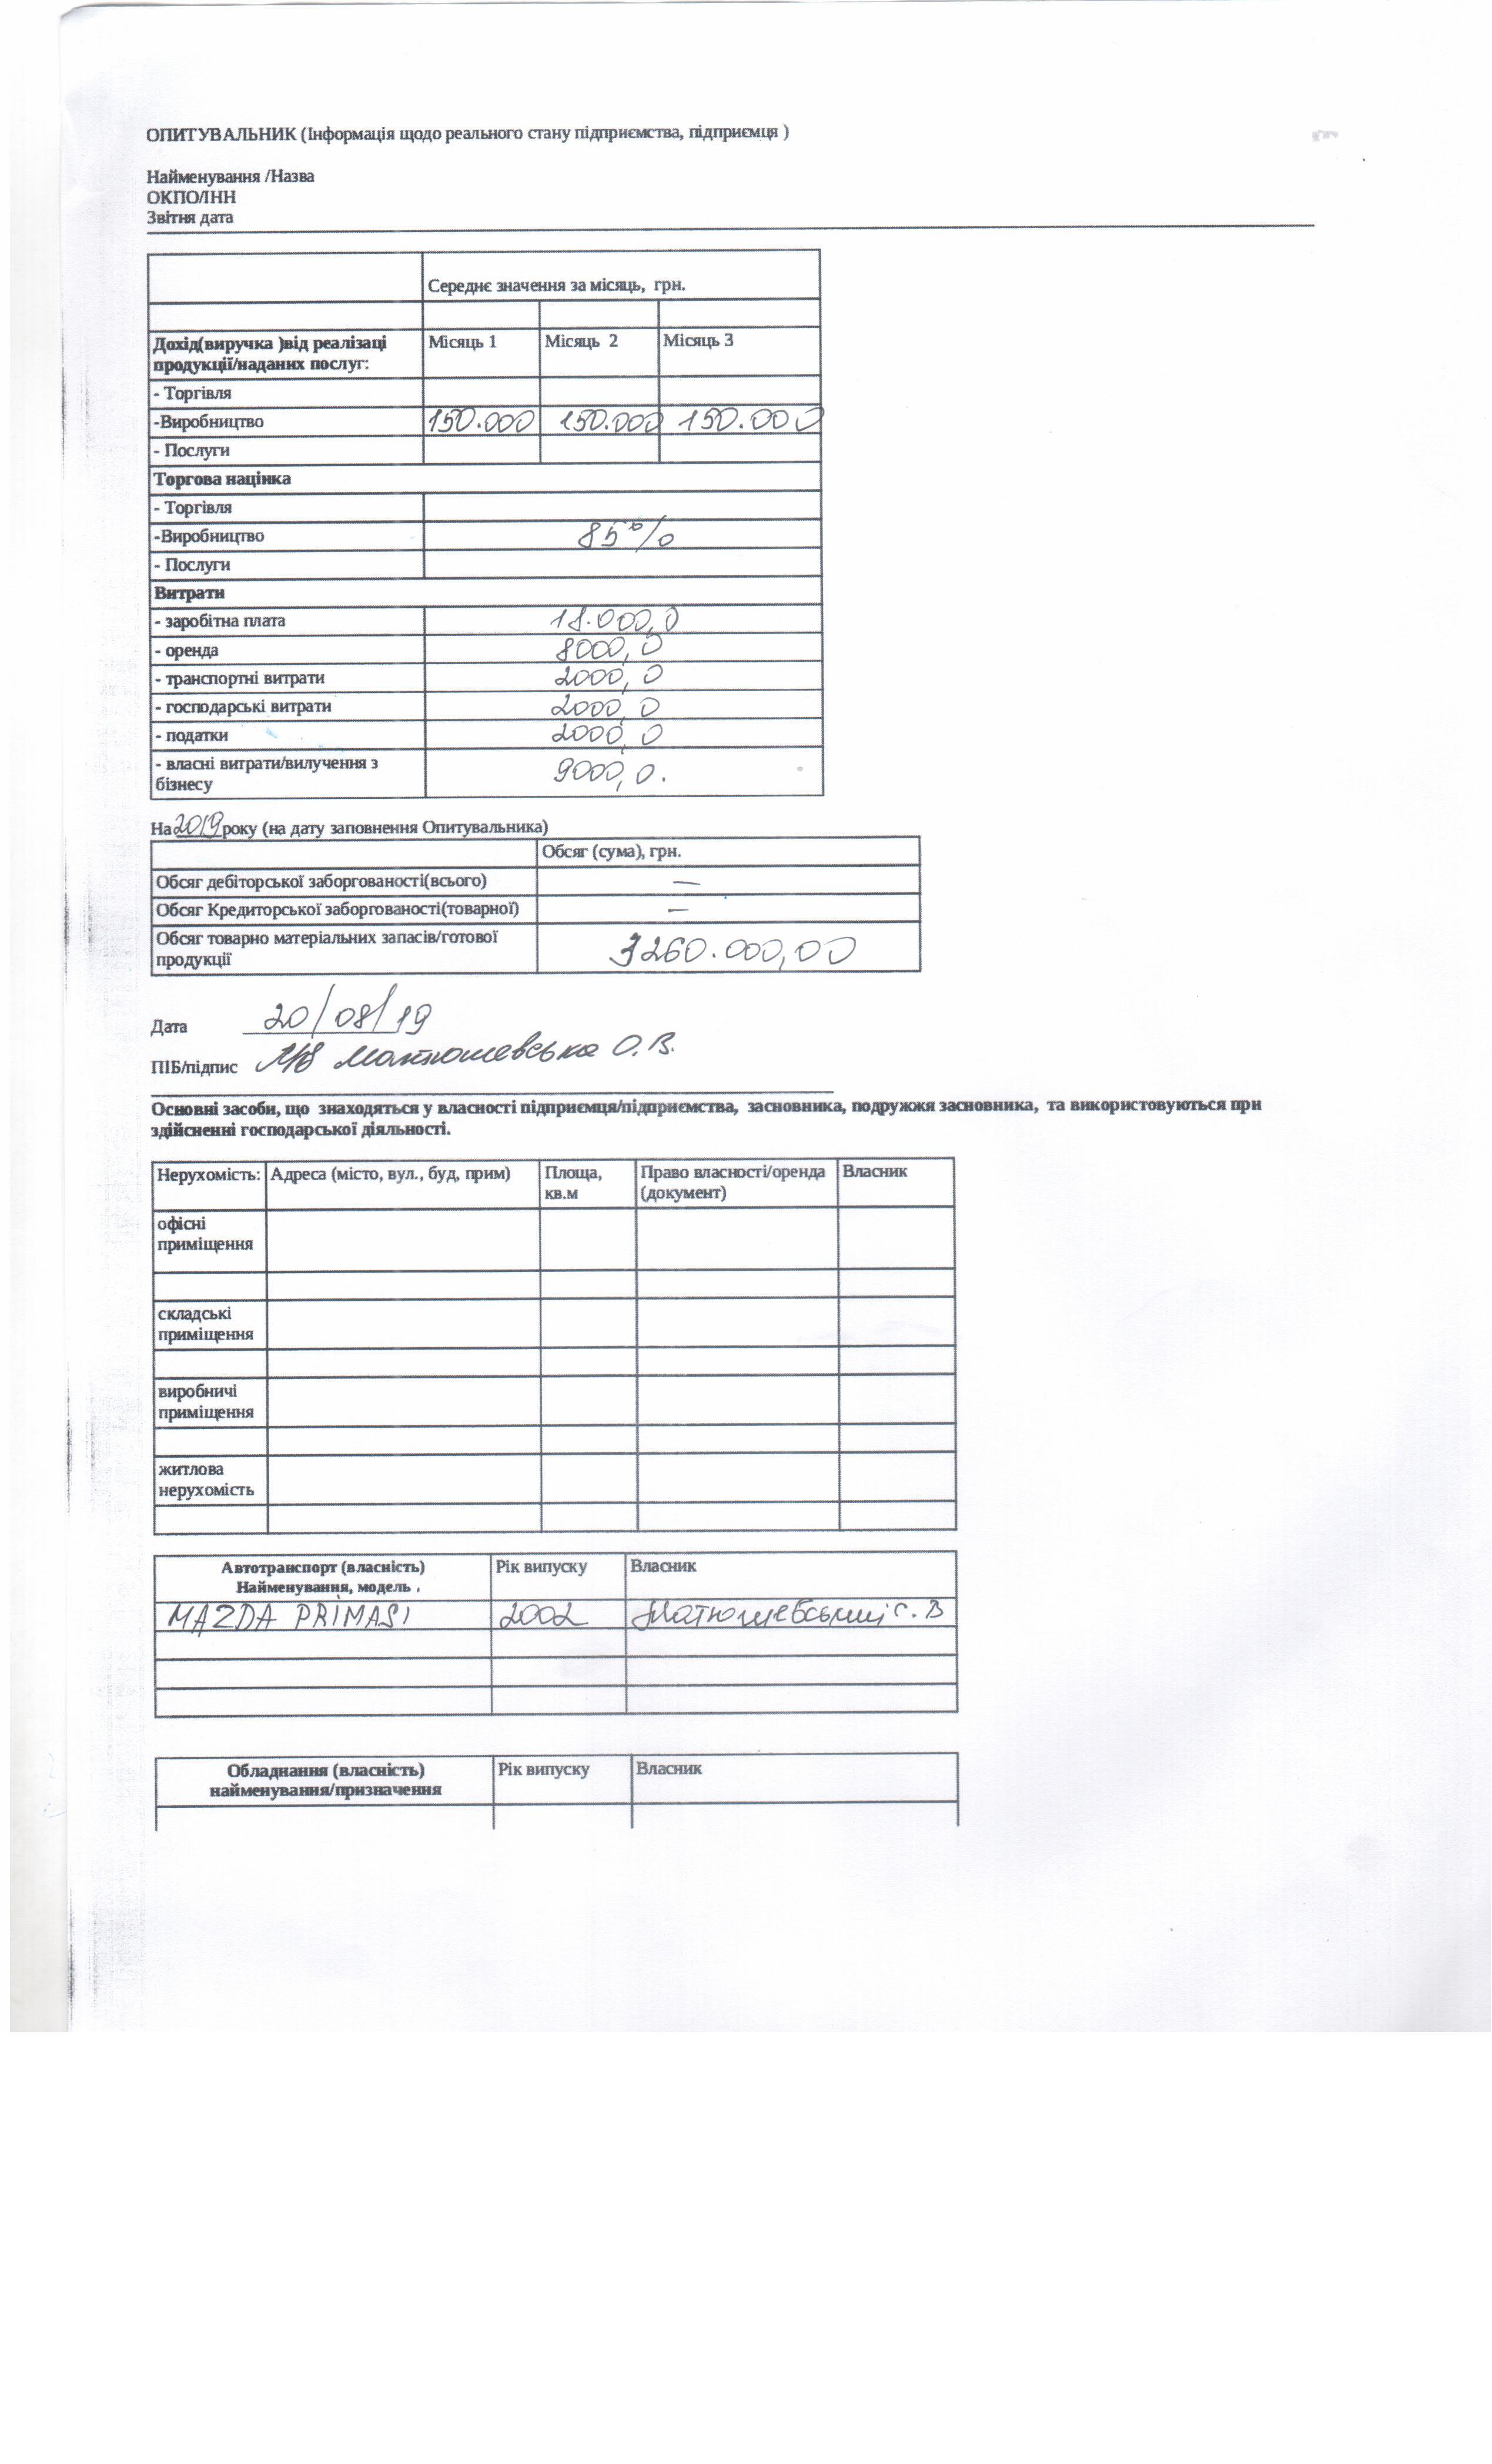 ОПИТУВАЛЬНИК (Інформація щодо реального стану підприємства, підприємця )
Найменування /Назва
ОКПО/ІНН
Звітня дата
Середнє значення за місяць, грн.
Дохід(виручка )від реалізаці продукції/наданих послуг: Місяць 1 Місяць 2 Місяць 3
- Торгівля
-Виробництво 150.000 150.000 150.000
- Послуги
Торгова націнка
- Торгівля
-Виробництво 85%
- Послуги
Витрати
- заробітна плата 18.000,0
- оренда 8000,0
- транспортні витрати 2000,0
- господарські витрати 2000,0
- податки 2000,0
- власні витрати/вилучення з бізнесу 9000,0.
На 2019 року (на дату заповнення Опитувальника)
Обсяг (сума), грн.
Обсяг дебіторської заборгованості(всього) —
Обсяг Кредиторської заборгованості(товарної) —
Обсяг товарно матеріальних запасів/готової продукції
Дата 20/08/19
ПІБ/підпис Матюшевська О.В.
Основні засоби, що знаходяться у власності підприємця/підприємства, засновника, подружжя засновника, та використовуються при
здійсненні господарської діяльності.
Нерухомість: Адреса (місто, вул., буд, прим) Площа, кв.м Право власності/оренда (документ) Власник
офісні приміщення
складські приміщення
виробничі приміщення
житлова нерухомість
Автотранспорт (власність) Найменування, модель . Рік випуску Власник
MAZDA PRIMASI 2002 С.В
Обладнання (власність) найменування/призначення Рік випуску Власник